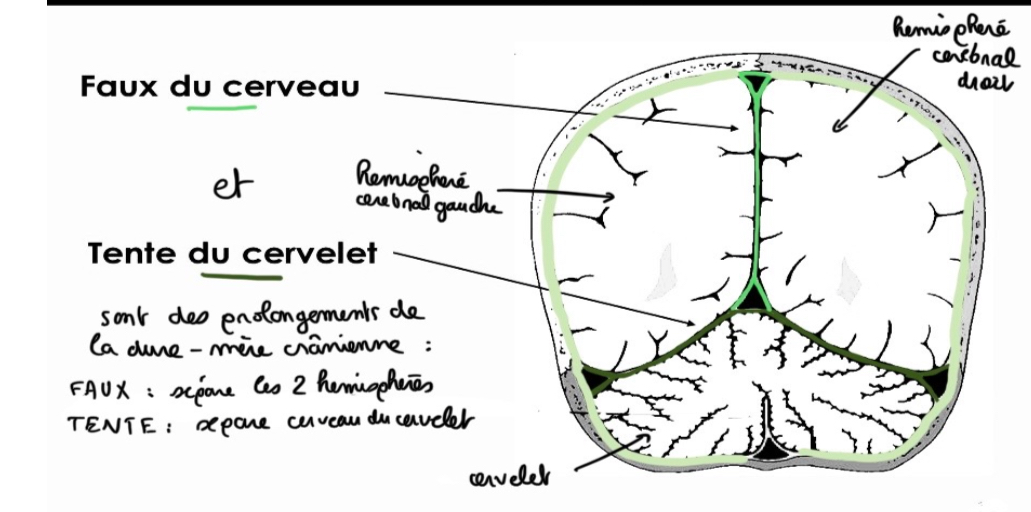 Faux du cerveau
et
Tente du cervelet
sont des prolongements de
la dure-mère crânienne :
FAUX : sépare les 2 hemispherēs
TENTE : separe cerveau du cervelet
Hemispheré
cerebral gauche
Hemispheré
cerébral
droit
cervelet